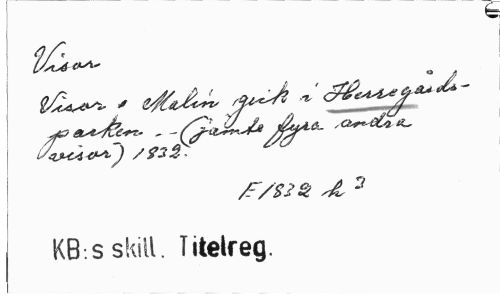 Visor
Visor. Malin gick i Herregårds-
parken -- (jämte fyra andra
visor) 1832.
E 1832 h 3
KB:s skill. Titelreg.